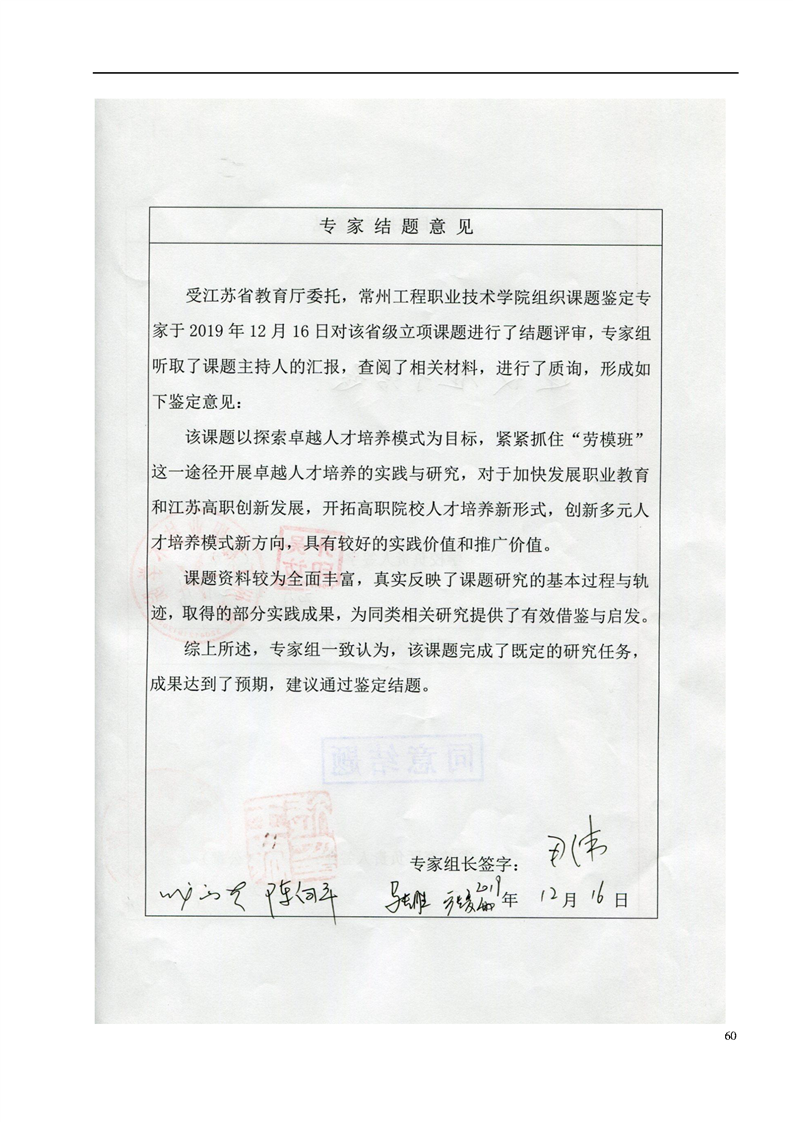 专家结题意见
受江苏省教育厅委托，常州工程职业技术学院组织课题鉴定专
家于 2019 年 12 月 16 日对该省级立项课题进行了结题评审，专家组
听取了课题主持人的汇报，查阅了相关材料，进行了质询，形成如
下鉴定意见：
该课题以探索卓越人才培养模式为目标，紧紧抓住“劳模班”
这一途径开展卓越人才培养的实践与研究，对于加快发展职业教育
和江苏高职创新发展，开拓高职院校人才培养新形式，创新多元人
才培养模式新方向，具有较好的实践价值和推广价值。
课题资料较为全面丰富，真实反映了课题研究的基本过程与轨
迹，取得的部分实践成果，为同类相关研究提供了有效借鉴与启发。
综上所述，专家组一致认为，该课题完成了既定的研究任务，
成果达到了预期，建议通过鉴定结题。
同意结题
专家组长签字：
2019 年 12 月 16 日
60